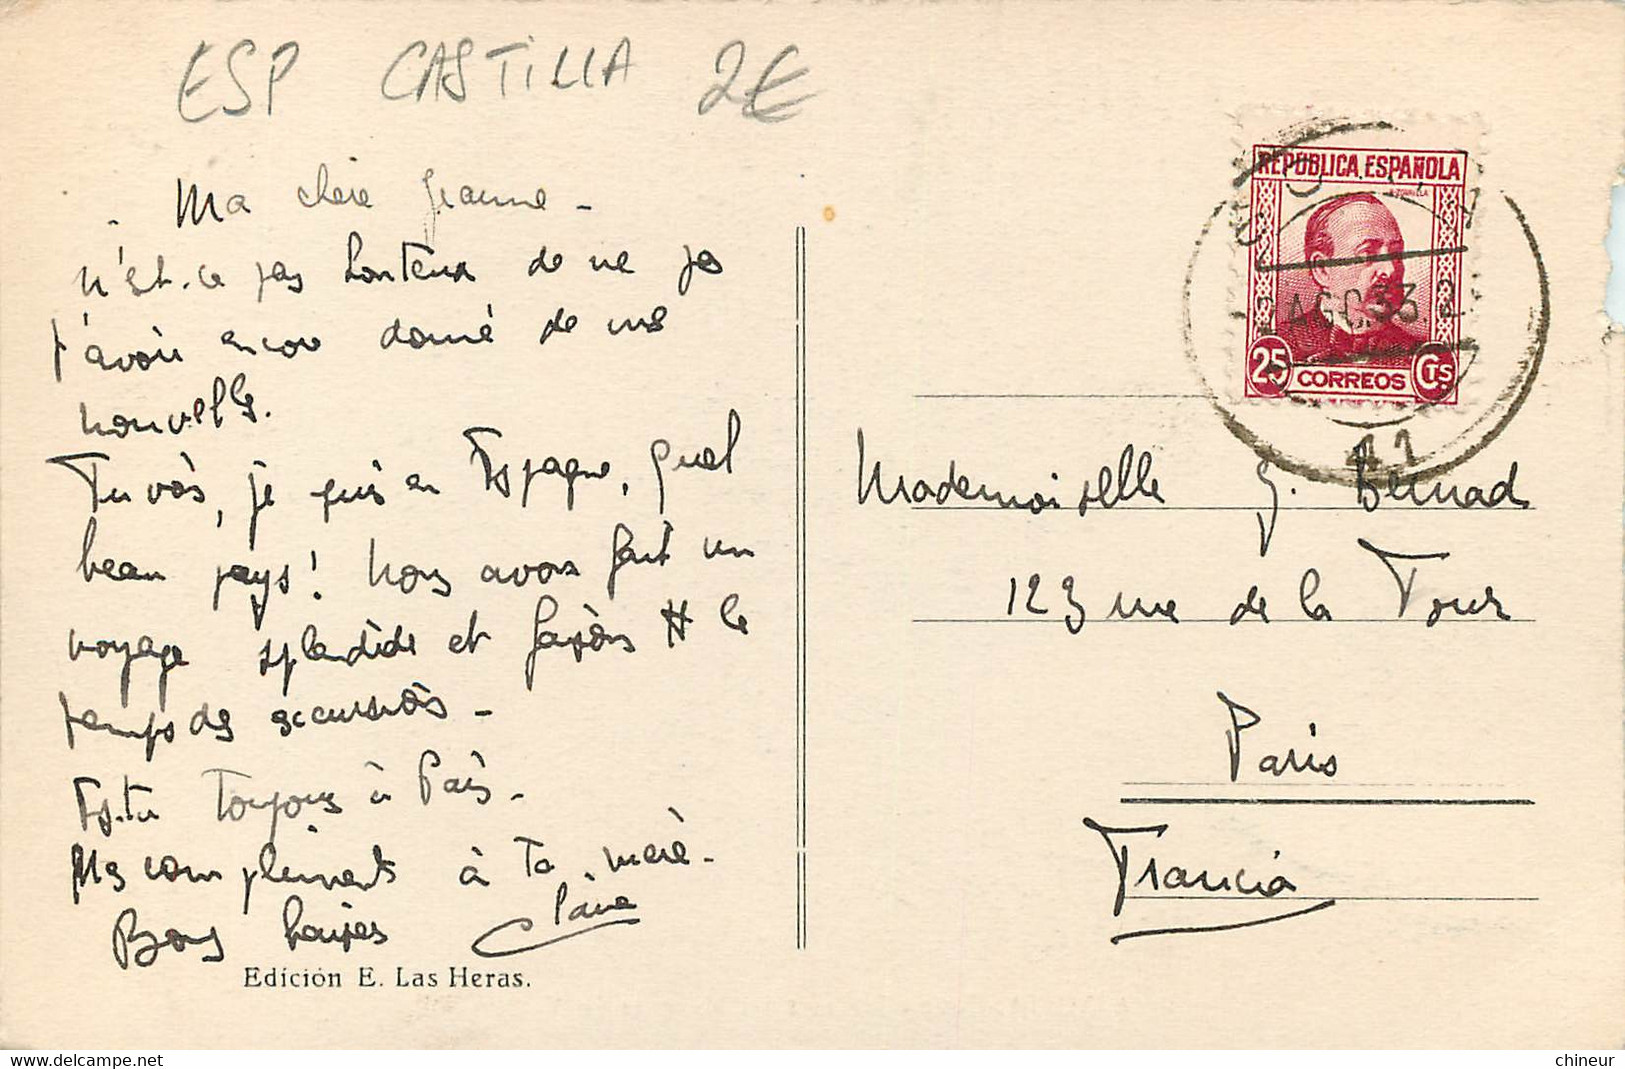 ESP CASTILLA 2€
Ma chère Jeanne -
n'est-ce pas honteux de ne pas
t'avoir encore donné de mes
nouvelles.
Tu vois, je suis en Espagne, quel
beau pays! Nous avons fait un
voyage splendide et faisons tt le
temps des excursions -
Es-tu toujours à Paris -
Mes compliments à ta mère -
Bons baisers Claire
Edición E. Las Heras.
REPÚBLICA ESPAÑOLA
AGO.33
25 CORREOS CTS
41
Mademoiselle J. Bernad
123 rue de la Tour
Paris
Francia
delcampe.net
chineur